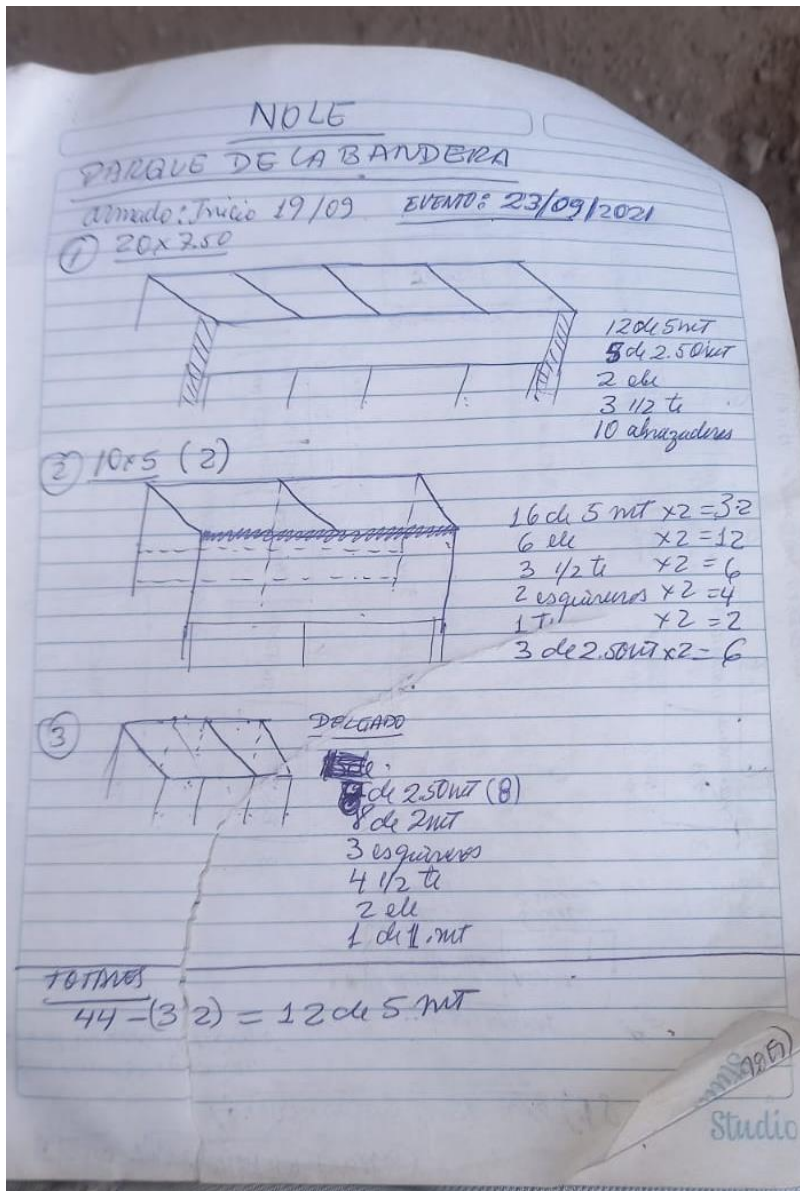 NOLE
PARQUE DE LA BANDERA
armado: Inicio 19/09 EVENTO: 23/09/2021
① 20x7.50
12 de 5 mt
5 de 2.50 mt
2 ele
3 1/2 te
10 abrazaderas
② 10x5 (2)
16 de 5 mt x2 = 32
6 ele x2 = 12
3 1/2 te x2 = 6
2 esquineros x2 = 4
1 T x2 = 2
3 de 2.50 mt x2 = 6
③ DELGADO
de 2.50 mt (8)
8 de 2 mt
3 esquineros
4 1/2 te
2 ele
1 de 1. mt
TOTALES
44 - (32) = 12 de 5 mt
Studio